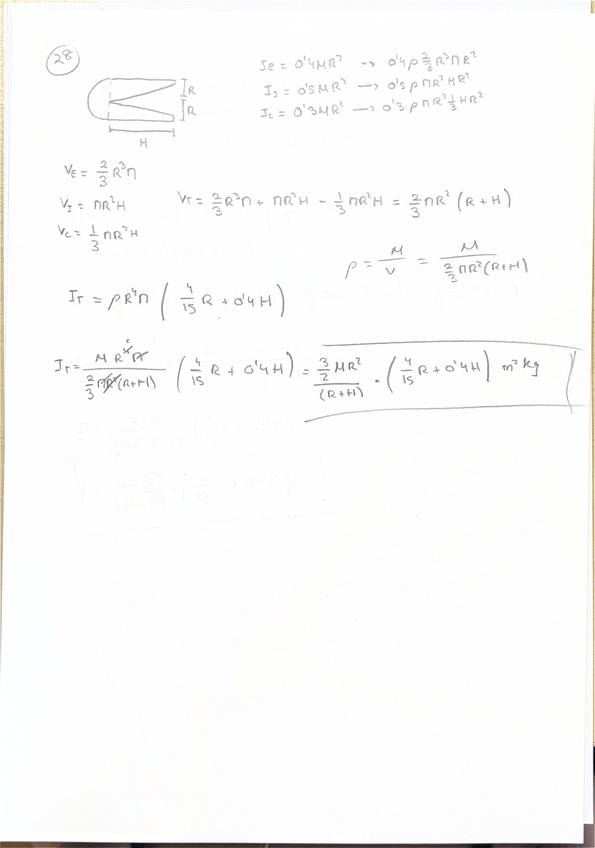 28
Je = 0'4MR² → 0'4ρ 2/3 R³ΠR²
JJ = 0'5MR² → 0'5ρΠR²HR²
Jc = 0'3MR² → 0'3ρΠR² 1/3 HR²
R
R
H
VE = 2/3 R³Π
VJ = ΠR²H
VC = 1/3 ΠR²H
VT = 2/3 R³Π + ΠR²H - 1/3 ΠR²H = 2/3 ΠR² (R + H)
ρ = M/V = M / (2/3 ΠR²(R+H))
JT = ρR⁴Π (4/15 R + 0'4H)
JT = M R⁴Π / (2/3 ΠR²(R+H)) (4/15 R + 0'4H) = 3/2 MR² / (R+H) · (4/15 R + 0'4H) m² kg